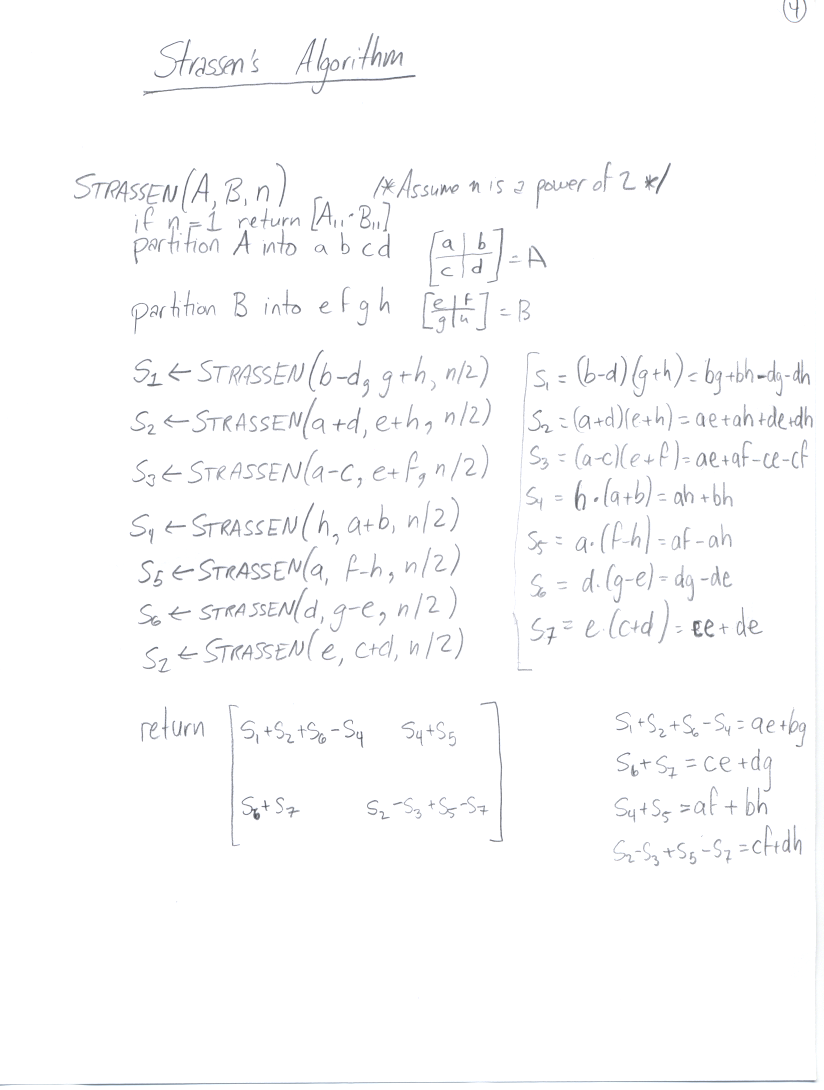 4
Strassen's Algorithm
STRASSEN(A, B, n) /* Assume n is a power of 2 */
if n = 1 return [A₁₁·B₁₁]
partition A into a b c d [a b
c d] = A
partition B into e f g h [e f
g h] = B
S1 ← STRASSEN(b-d, g+h, n/2)
S2 ← STRASSEN(a+d, e+h, n/2)
S3 ← STRASSEN(a-c, e+f, n/2)
S4 ← STRASSEN(h, a+b, n/2)
S5 ← STRASSEN(a, f-h, n/2)
S6 ← STRASSEN(d, g-e, n/2)
S7 ← STRASSEN(e, c+d, n/2)
S1 = (b-d)(g+h) = bg+bh-dg-dh
S2 = (a+d)(e+h) = ae+ah+de+dh
S3 = (a-c)(e+f) = ae+af-ce-cf
S4 = h·(a+b) = ah+bh
S5 = a·(f-h) = af-ah
S6 = d·(g-e) = dg-de
S7 = e·(c+d) = ce+de
return [S1+S2+S6-S4 S4+S5
S6+S7 S2-S3+S5-S7]
S1+S2+S6-S4 = ae+bg
S6+S7 = ce+dg
S4+S5 = af+bh
S2-S3+S5-S7 = cf+dh